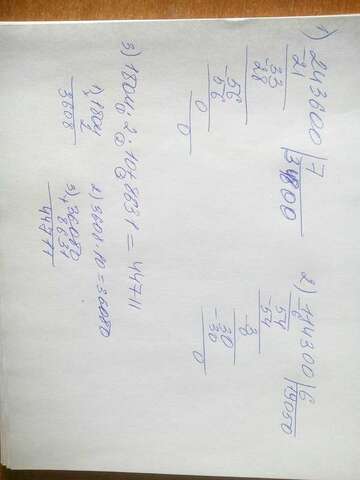 1) 243600 | 7
21 34800
33
28
56
56
0
0
2) 114300 | 6
6 19050
54
54
3
30
30
0
3) 1804 · 2 · 10 + 8631 = 44711
1) 1804
2
3608
2) 3608 · 10 = 36080
3) 36080
8631
44711